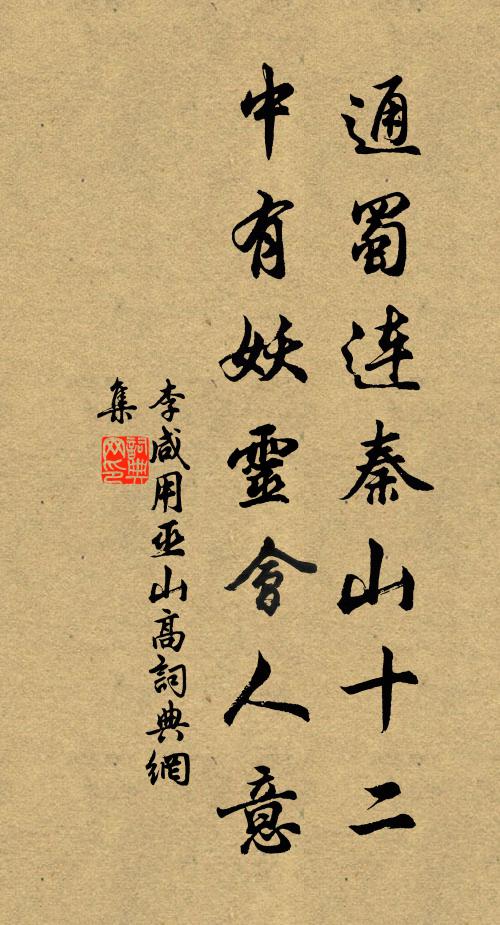 通蜀連秦山十二
中有妖靈會人意
李咸用巫山高詞典網
集
詞典
网印